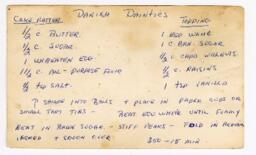 DANISH DAINTIES
CAKE BATTER
1/2 C. BUTTER.
1/2 C. SUGAR
1 UNBEATEN EGG
1 1/2 C. ALL-PURPOSE FLOUR
1/4 tsp SALT.
TOPPING
1 EGG WHITE
1 C BRN. SUGAR
1/2 C CHOP WALNUTS
1/2 C RAISINS
1 tsp VANILLA
SHAPE INTO BALLS & PLACE IN PAPER CUPS OR
SMALL TART TINS - BEAT EGG WHITE UNTIL FOAMY
BEAT IN BROWN SUGAR - STIFF PEAKS - FOLD IN REMAIN
& SPOON OVER 350 - 15 MIN